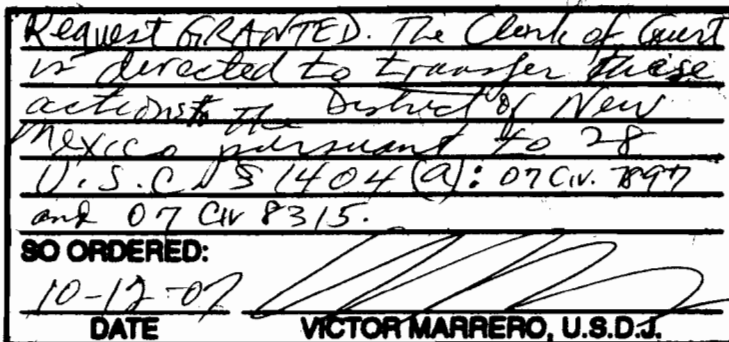 Request GRANTED. The Clerk of Court
is directed to transfer these
actions to the District of New
Mexico pursuant to 28
U.S.C. § 1404 (a): 07 Civ. 7897
and 07 Civ 8315.
SO ORDERED:
10-12-07
DATE VICTOR MARRERO, U.S.D.J.